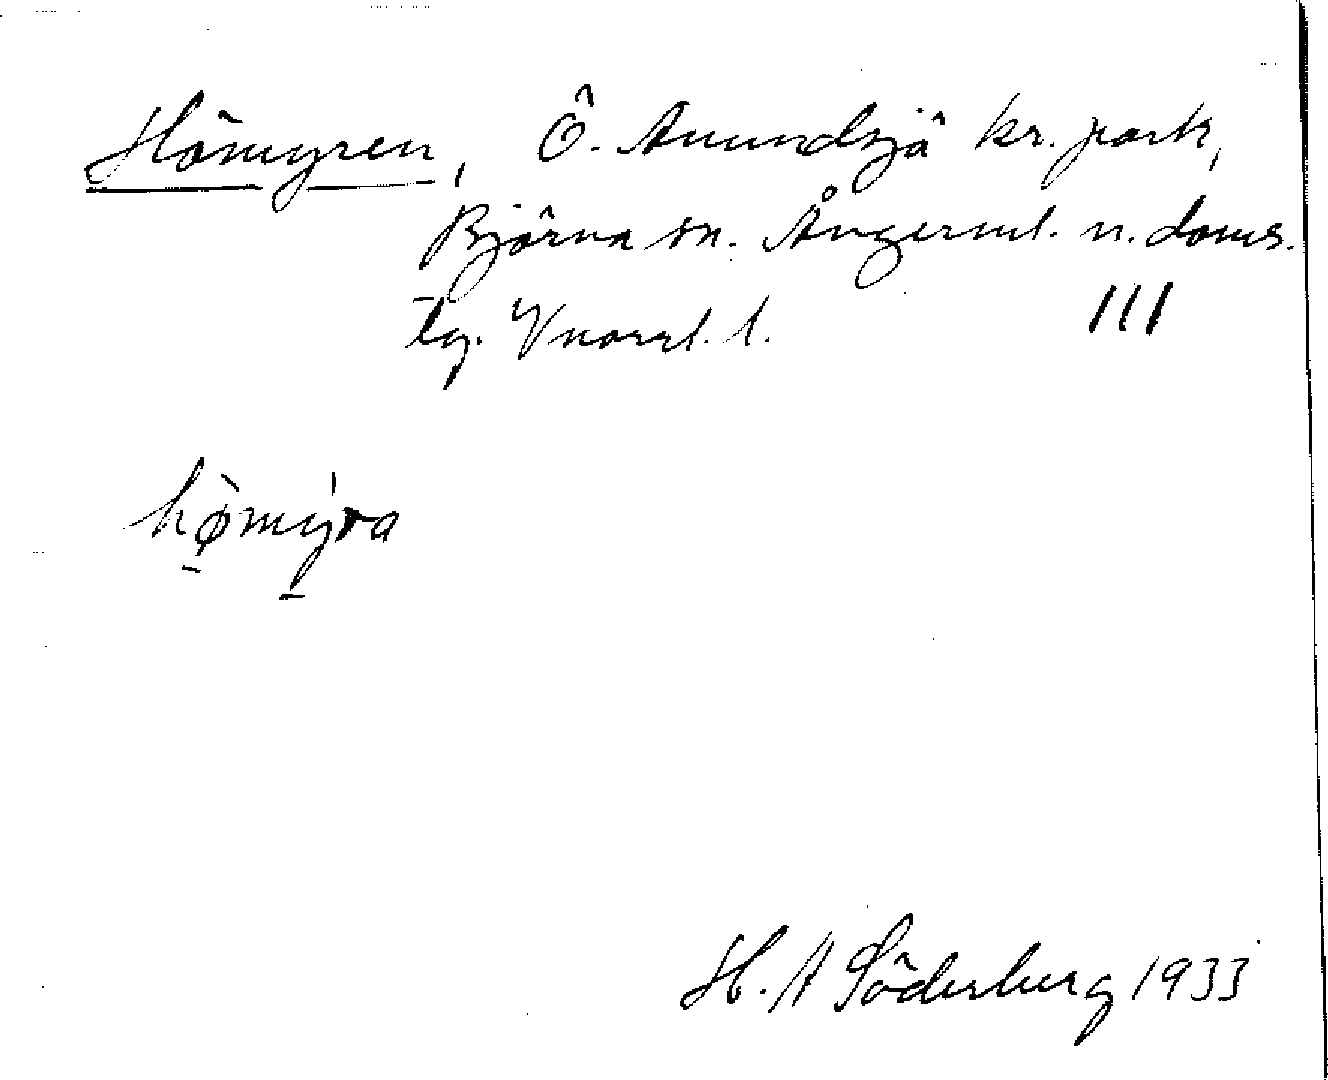 Hömyren, Ö. Anundsjö kr. park,
Björna sn. Ångerml. n. doms.
tg. Vnorrl. l. III
hø̀mýra
H. A Söderberg 1933